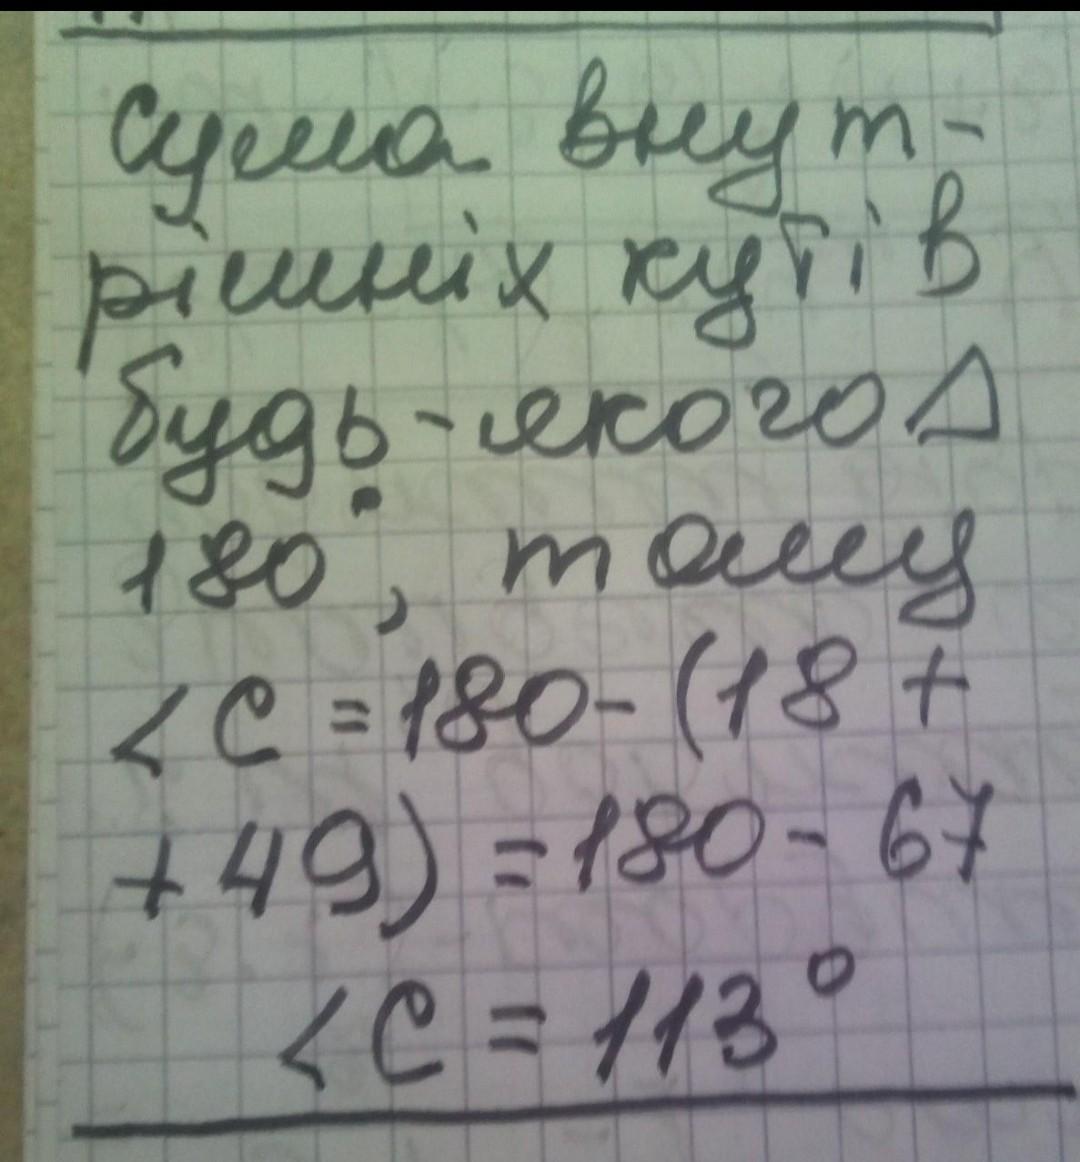 Сума внут-
рішніх кутів
будь-якого Δ
180°, тому
<C = 180 - (18 +
+ 49) = 180 - 67
<C = 113°